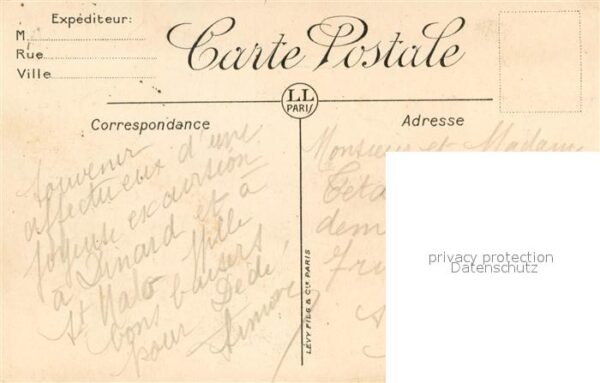 Expéditeur:
M
Rue
Ville
Carte Postale
LL
PARIS
Correspondance
Adresse
Souvenir
affectueux d'une
joyeuse excursion
à Dinard et à
St Malo Mille
bons baisers
pour Dédé,
Simone
Monsieur et Madame
LÉVY FILS & Cie PARIS
privacy protection
Datenschutz